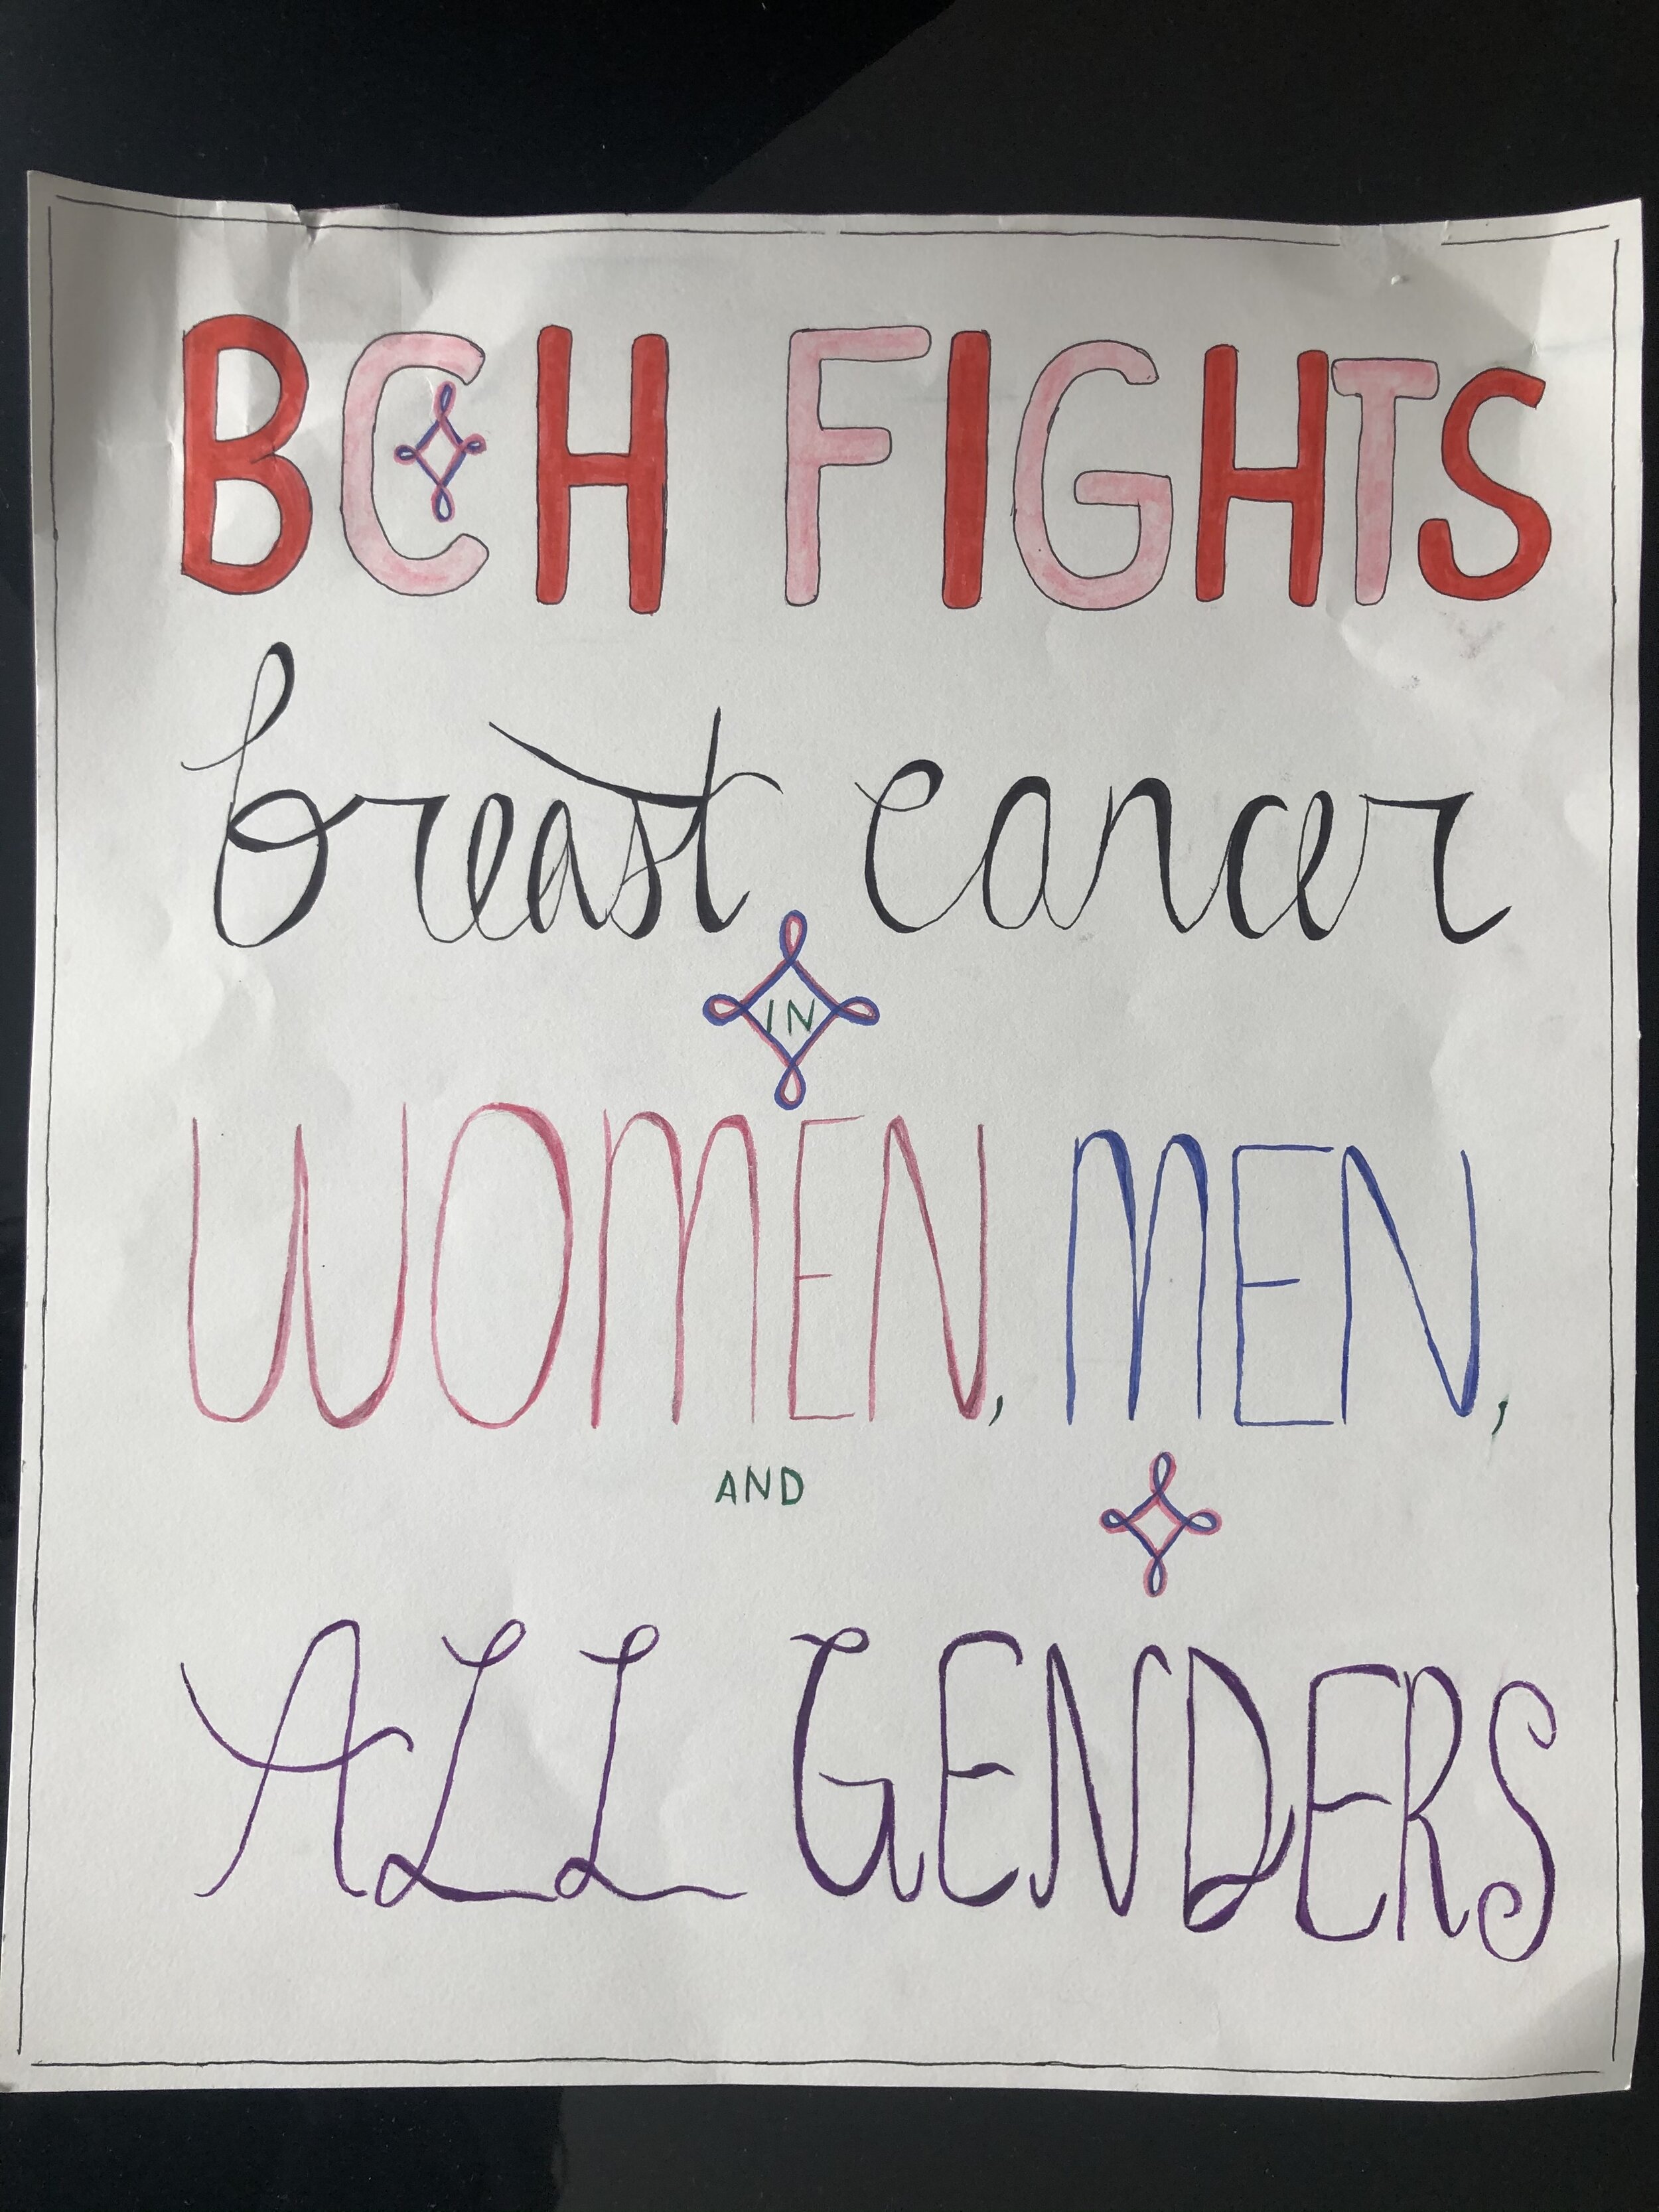 BCH FIGHTS
breast cancer
IN
WOMEN, MEN,
AND
ALL GENDERS